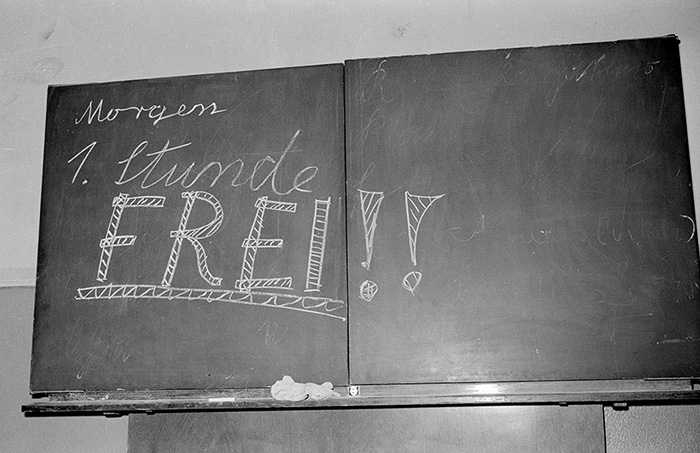 Morgen
1. Stunde
FREI!!